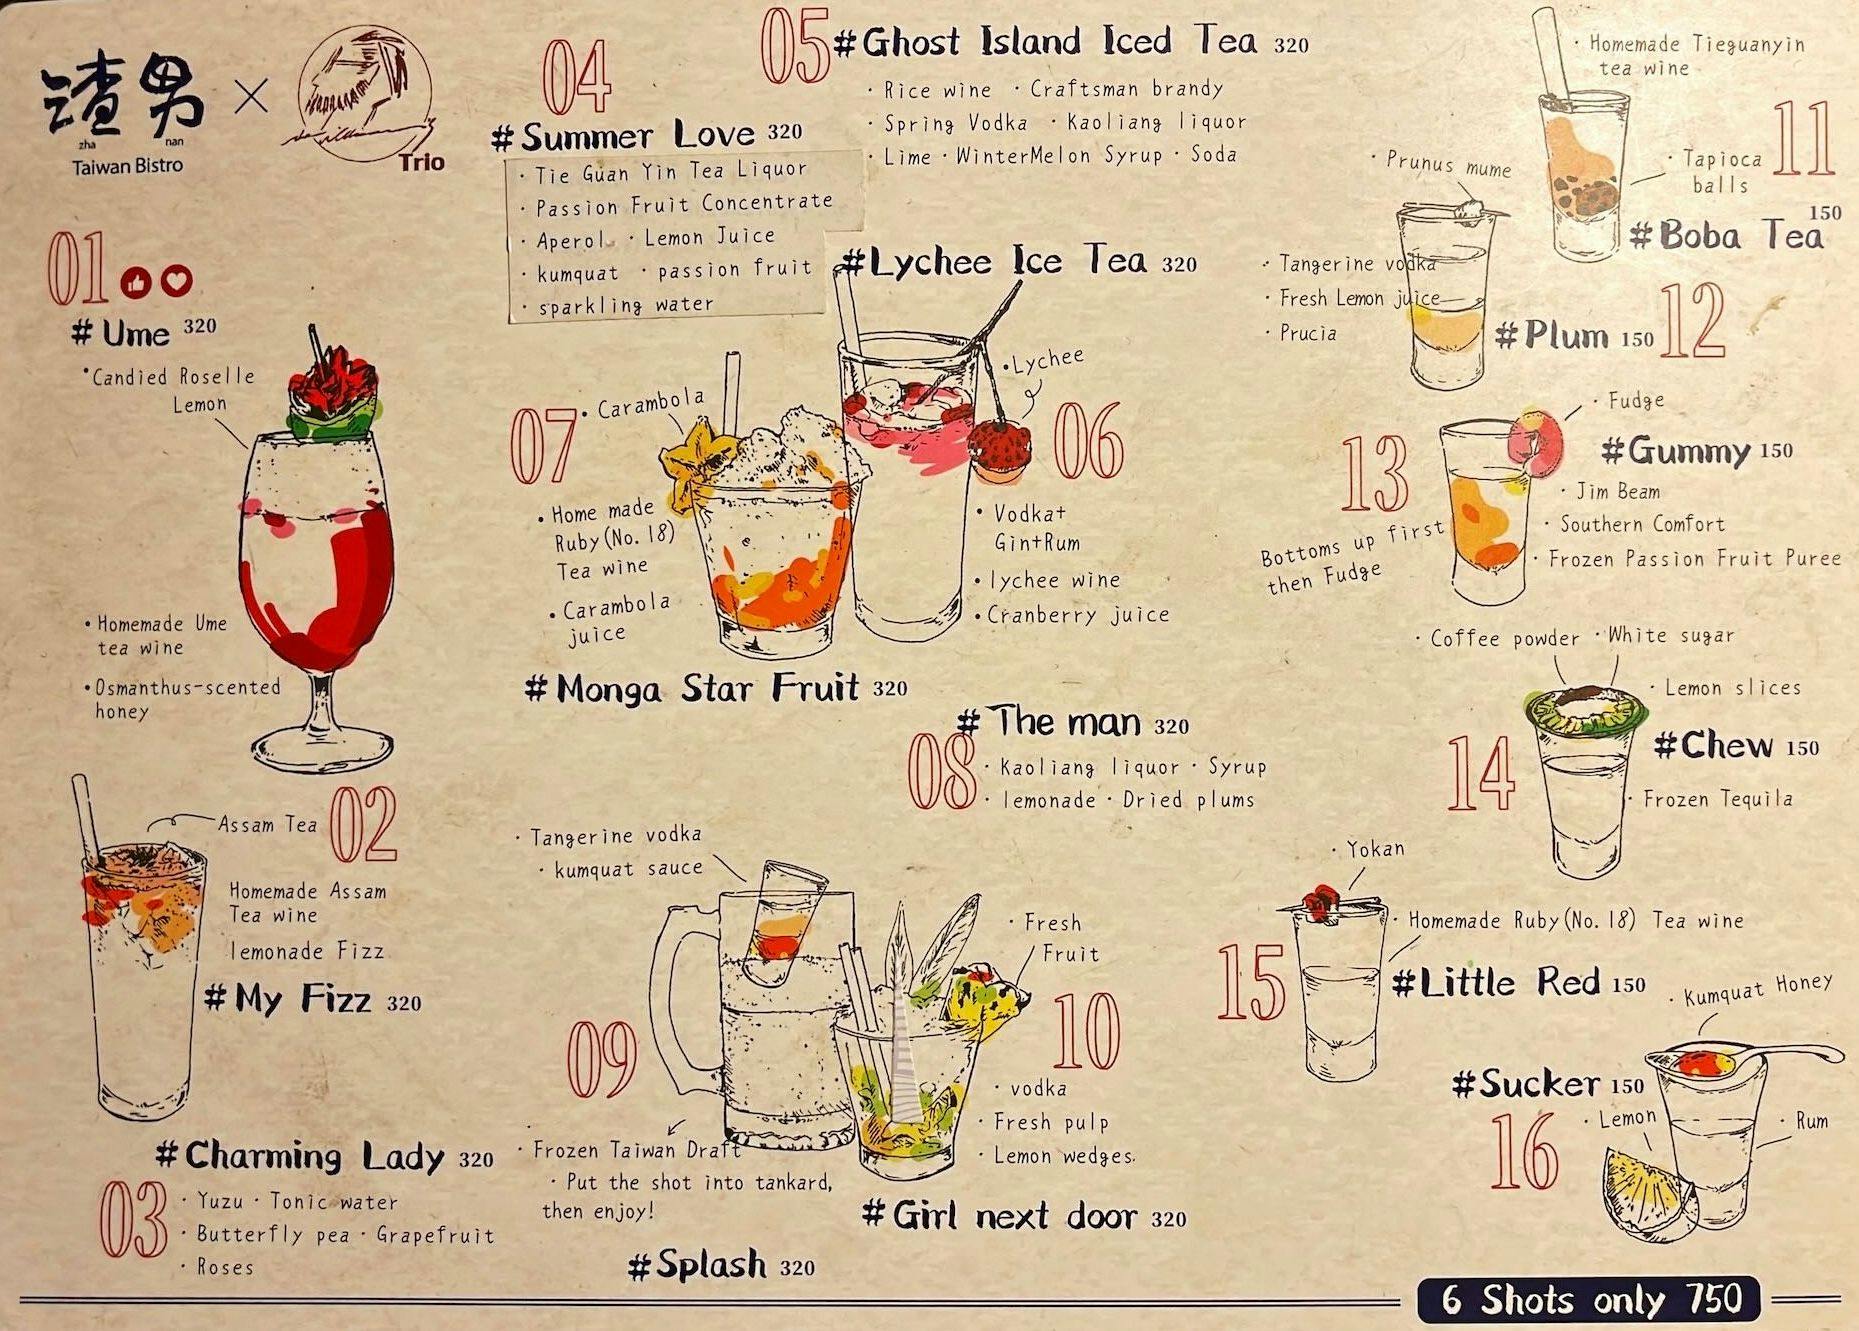 渣男
zha nan
Taiwan Bistro
Trio
01
#Ume 320
·Candied Roselle
Lemon
·Homemade Ume
tea wine
·Osmanthus-scented
honey
02
Assam Tea
Homemade Assam
Tea wine
lemonade Fizz
#My Fizz 320
#Charming Lady 320
03
·Yuzu ·Tonic water
·Butterfly pea ·Grapefruit
·Roses
04
#Summer Love 320
·Tie Guan Yin Tea Liquor
·Passion Fruit Concentrate
·Aperol ·Lemon Juice
·kumquat ·passion fruit
·sparkling water
05
#Ghost Island Iced Tea 320
·Rice wine ·Craftsman brandy
·Spring Vodka ·Kaoliang liquor
·Lime ·WinterMelon Syrup ·Soda
#Lychee Ice Tea 320
·Lychee
06
·Vodka+
Gin+Rum
·lychee wine
·Cranberry juice
07
·Carambola
·Home made
Ruby(No. 18)
Tea wine
·Carambola
juice
#Monga Star Fruit 320
#The man 320
08
·Kaoliang liquor ·Syrup
·lemonade ·Dried plums
·Tangerine vodka
·kumquat sauce
09
·Frozen Taiwan Draft
·Put the shot into tankard,
then enjoy!
#Splash 320
·Fresh
Fruit
10
·vodka
·Fresh pulp
·Lemon wedges
#Girl next door 320
·Homemade Tieguanyin
tea wine
11
·Tapioca
balls
#Boba Tea 150
·Prunus mume
·Tangerine vodka
·Fresh Lemon juice
·Prucia
#Plum 150
12
·Fudge
13
#Gummy 150
·Jim Beam
·Southern Comfort
·Frozen Passion Fruit Puree
Bottoms up first
then Fudge
·Coffee powder ·White sugar
·Lemon slices
#Chew 150
14
·Frozen Tequila
·Yokan
·Homemade Ruby(No. 18) Tea wine
15
#Little Red 150
·Kumquat Honey
#Sucker 150
16
·Lemon
·Rum
6 Shots only 750